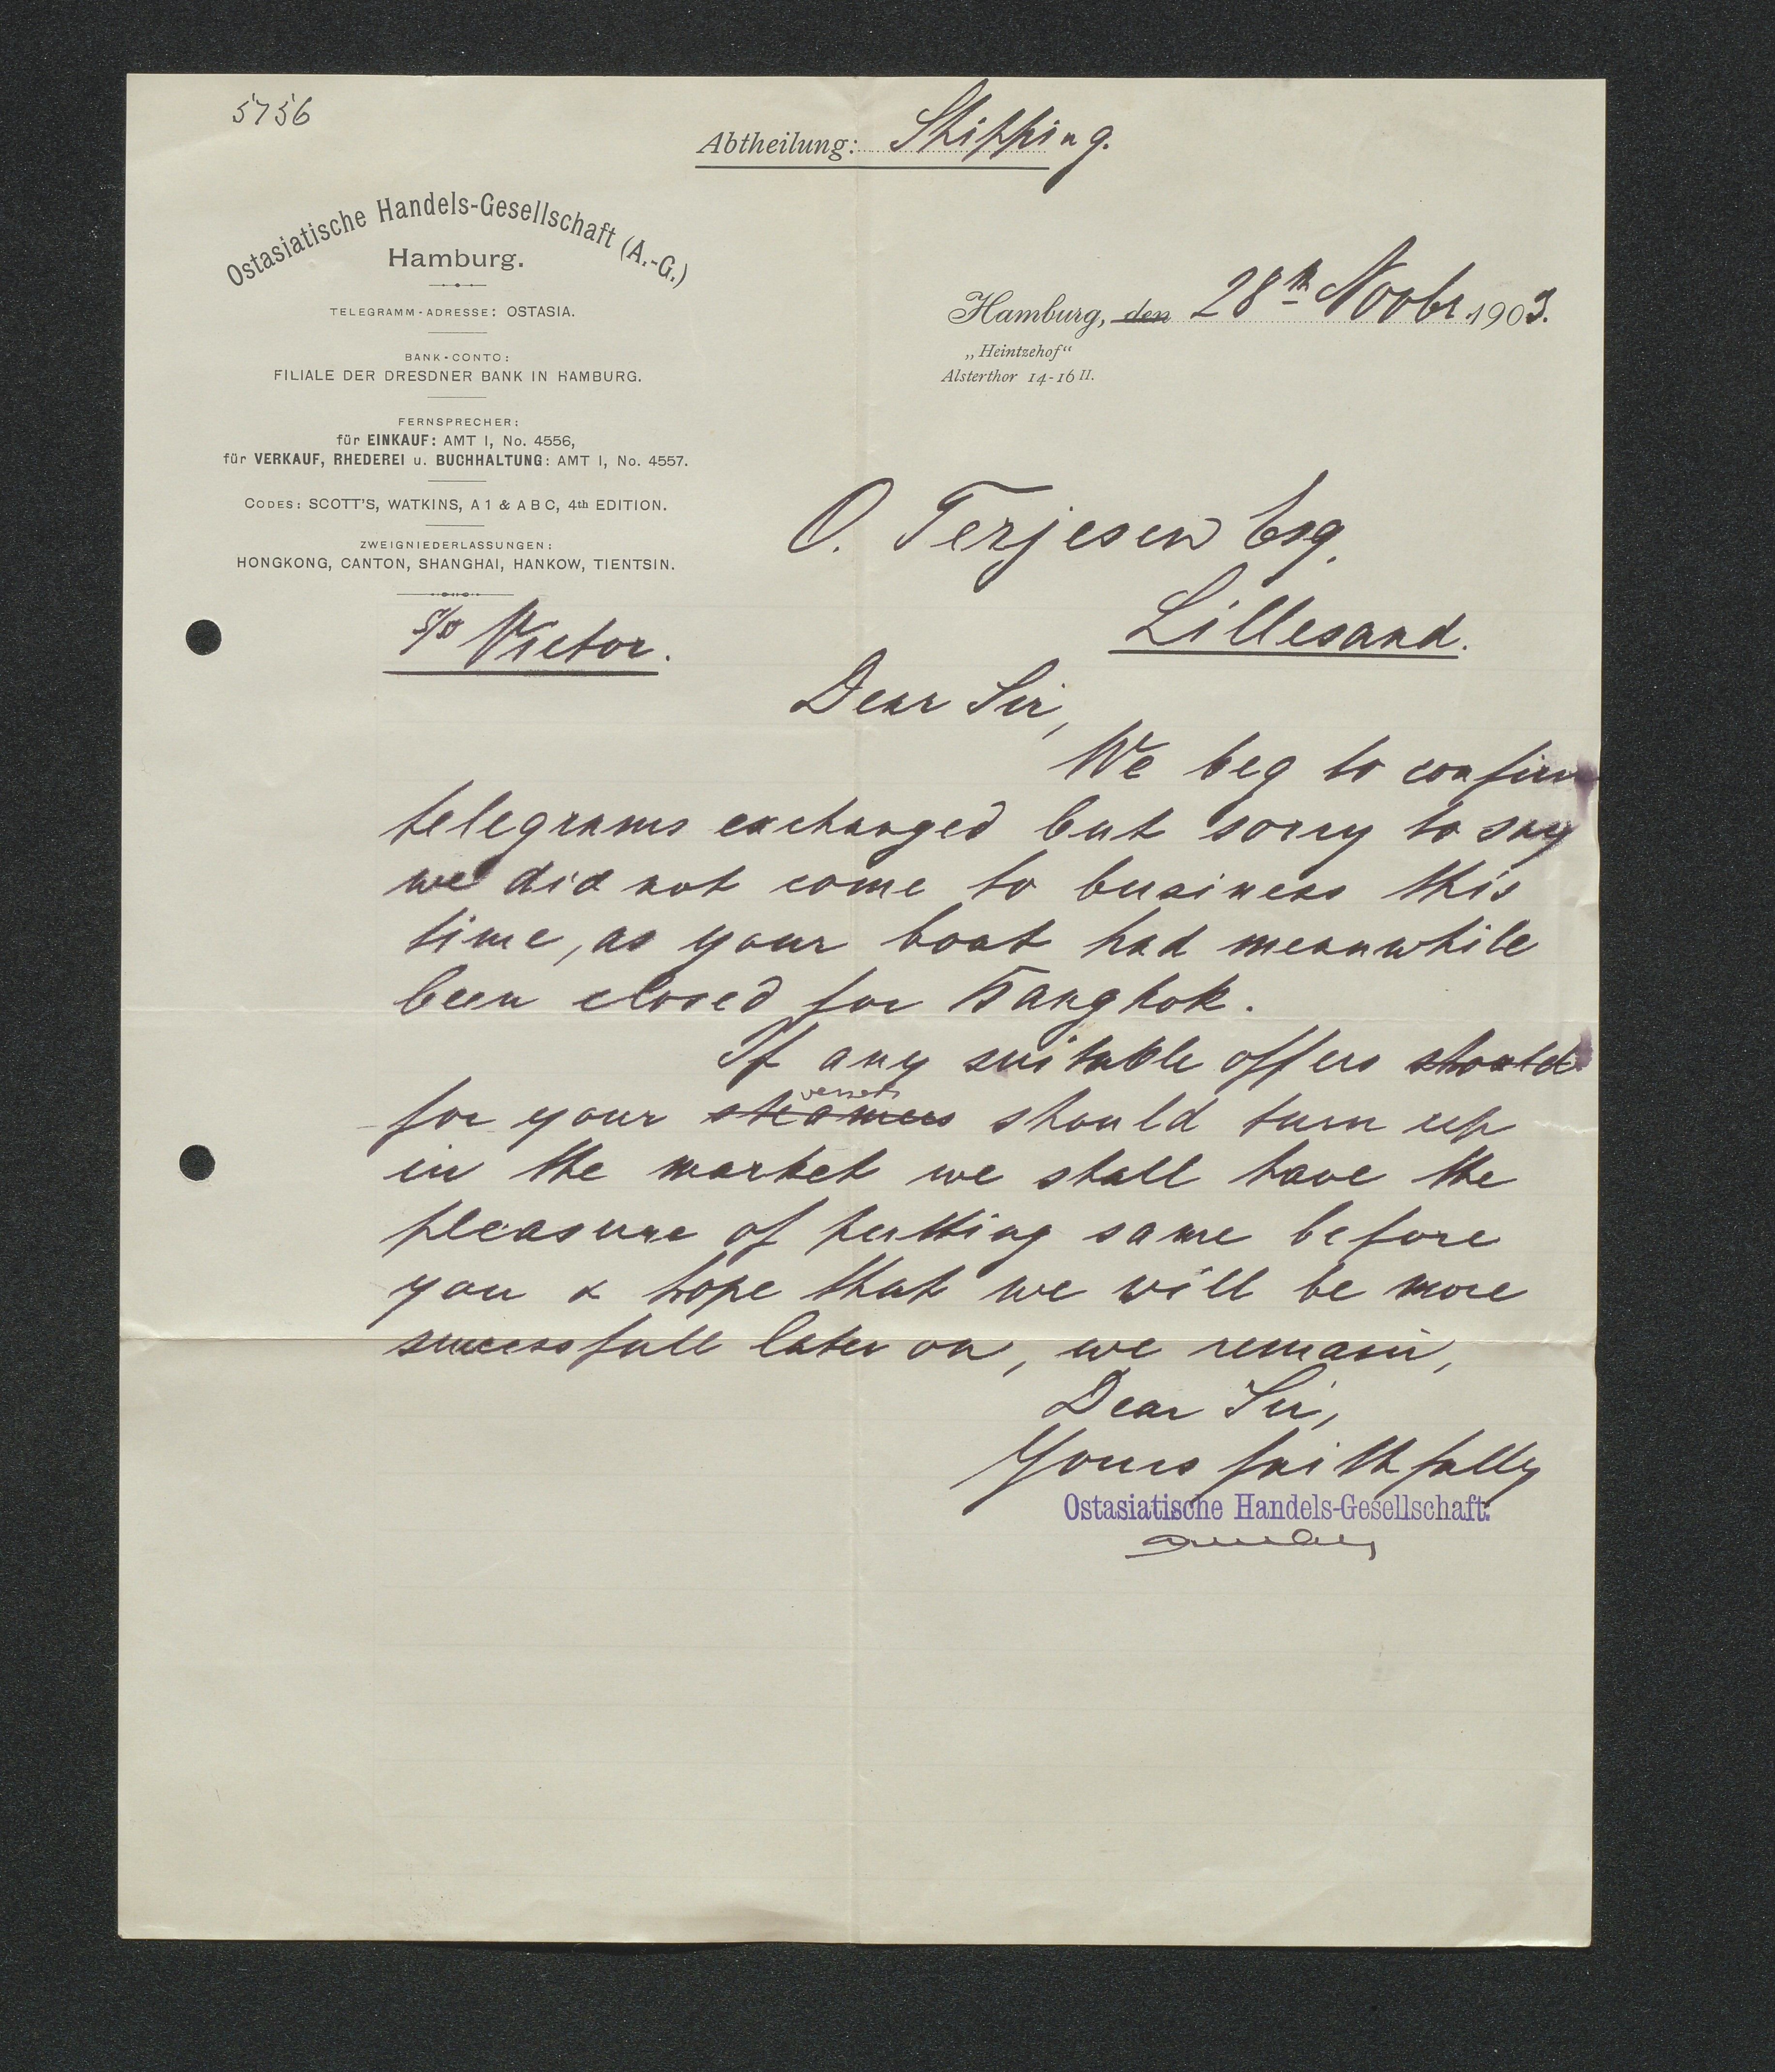 5756
Abtheilung: Shipping.
Ostasiatische Handels-Gesellschaft (A.-G.)
Hamburg.
TELEGRAMM-ADRESSE: OSTASIA.
BANK-CONTO:
FILIALE DER DRESDNER BANK IN HAMBURG.
FERNSPRECHER:
für EINKAUF: AMT I, No. 4556,
für VERKAUF, RHEDEREI u. BUCHHALTUNG: AMT I, No. 4557.
CODES: SCOTT'S, WATKINS, A 1 & A B C, 4th EDITION.
ZWEIGNIEDERLASSUNGEN:
HONGKONG, CANTON, SHANGHAI, HANKOW, TIENTSIN.
Hamburg, den 28th Novbr. 1903.
„Heintzehof“
Alsterthor 14-16 II.
O. Terjesen Esq.
Lillesand.
S/S Victor.
Dear Sir,
We beg to confirm
telegrams exchanged but sorry to say
we did not come to business this
time, as your boat had meanwhile
been closed for Bangkok.
If any suitable offers should
for your steamers vessels should turn up
in the market we shall have the
pleasure of putting same before
you & hope that we will be more
successfull later on, we remain,
Dear Sir,
Yours faithfully
Ostasiatische Handels-Gesellschaft.